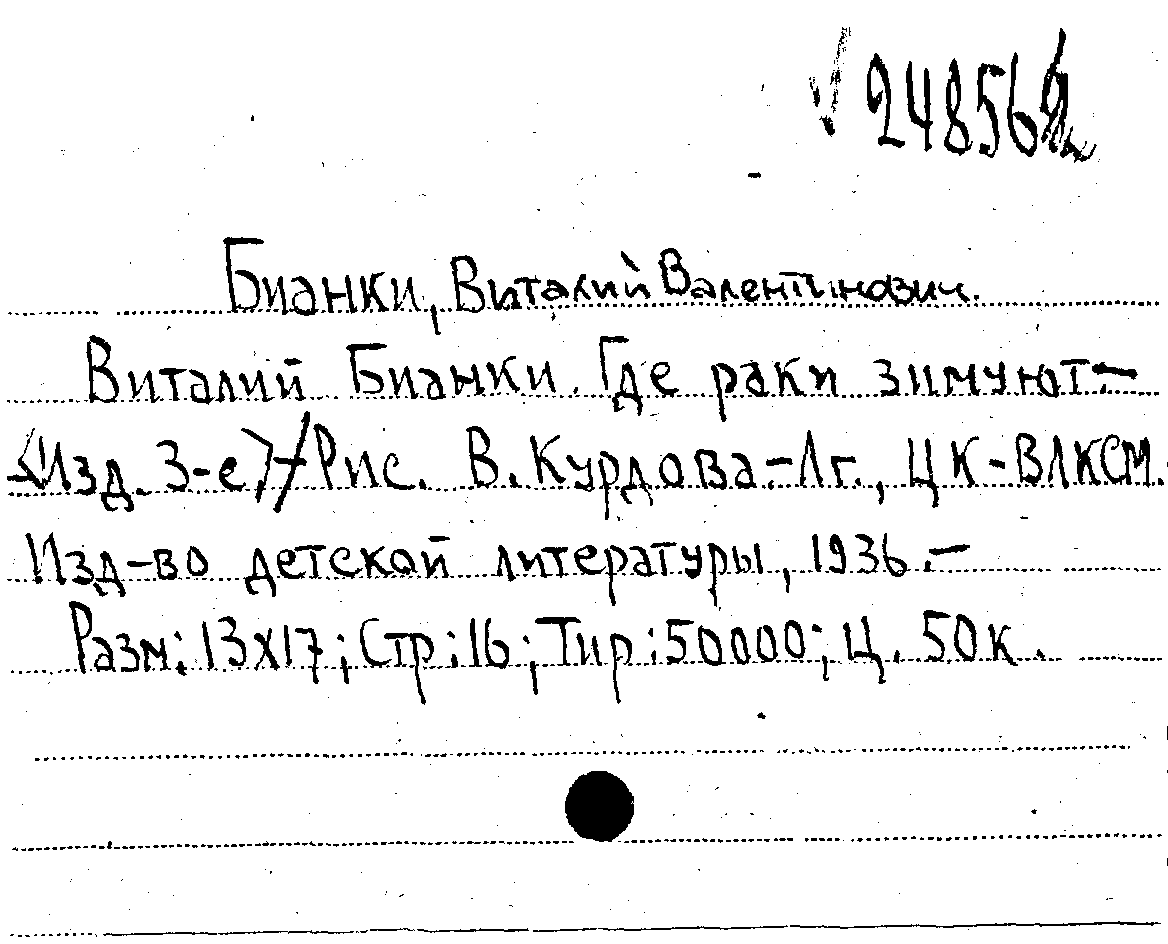 Бианки, Виталий Валентинович.
Виталий Бианки. Где раки зимуют.—
<Изд. 3-е> / Рис. В. Курдова.-Лг., ЦК-ВЛКСМ.
Изд-во детской литературы, 1936.—
Разм: 13x17; Стр: 16; Тир: 50000; Ц. 50к.